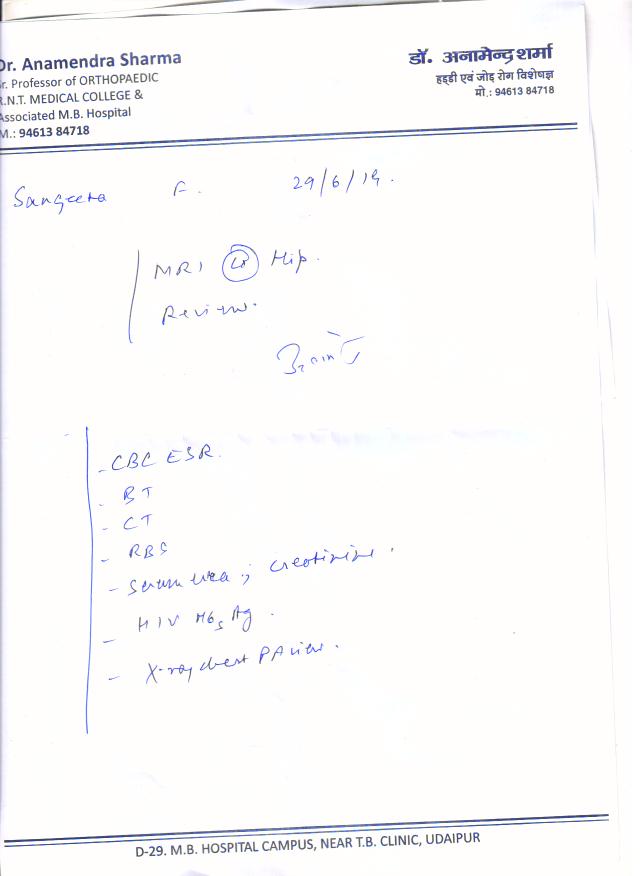 Dr. Anamendra Sharma
r. Professor of ORTHOPAEDIC
R.N.T. MEDICAL COLLEGE &
Associated M.B. Hospital
M.: 94613 84718
डॉ. अनामेन्द्र शर्मा
हड्डी एवं जोड़ रोग विशेषज्ञ
मो.: 94613 84718
Sangeeta F. 29/6/19.
MRI Hip.
Review.
- CBC ESR.
- BT
- CT
- RBS
- Serum urea ; creatinine.
- HIV HbsAg.
- X-ray chest PA view.
D-29. M.B. HOSPITAL CAMPUS, NEAR T.B. CLINIC, UDAIPUR